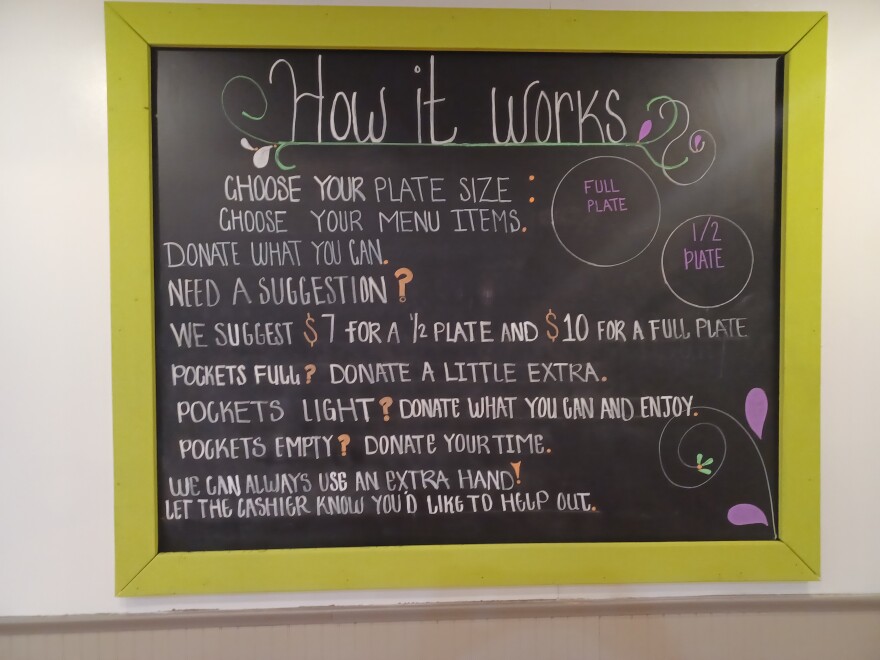 How it works
CHOOSE YOUR PLATE SIZE :
CHOOSE YOUR MENU ITEMS.
FULL
PLATE
1/2
PLATE
DONATE WHAT YOU CAN.
NEED A SUGGESTION?
WE SUGGEST $7 FOR A 1/2 PLATE AND $10 FOR A FULL PLATE
POCKETS FULL? DONATE A LITTLE EXTRA.
POCKETS LIGHT? DONATE WHAT YOU CAN AND ENJOY.
POCKETS EMPTY? DONATE YOUR TIME.
WE CAN ALWAYS USE AN EXTRA HAND!
LET THE CASHIER KNOW YOU'D LIKE TO HELP OUT.